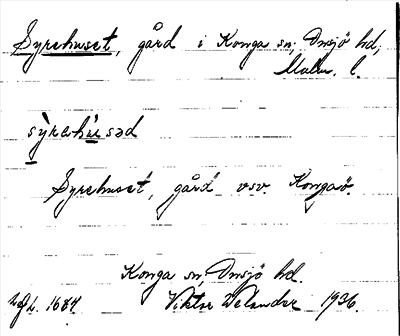 Syrehuset, gård i Konga sn, Onsjö hd,
Malm. l.
sỳrəhùsəd
Syrehuset, gård vsv Kongaö.
Konga sn, Onsjö hd.
1684. Viktor Welander 1936.